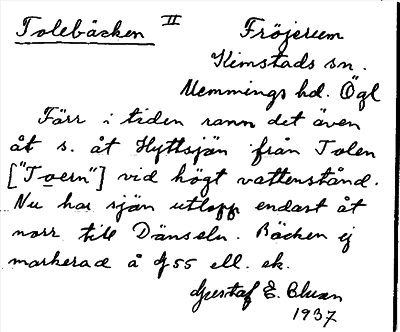 Tolebäcken II Fröjerum
Kimstads sn.
Memmings hd. Ögl
Förr i tiden rann det även
åt s. åt Hyttsjön från Tolen
["Toern"] vid högt vattenstånd.
Nu har sjön utlopp endast åt
norr till Dänseln. Bäcken ej
markerad å G 55 ell. ek.
Gustaf E. Bluan
1937